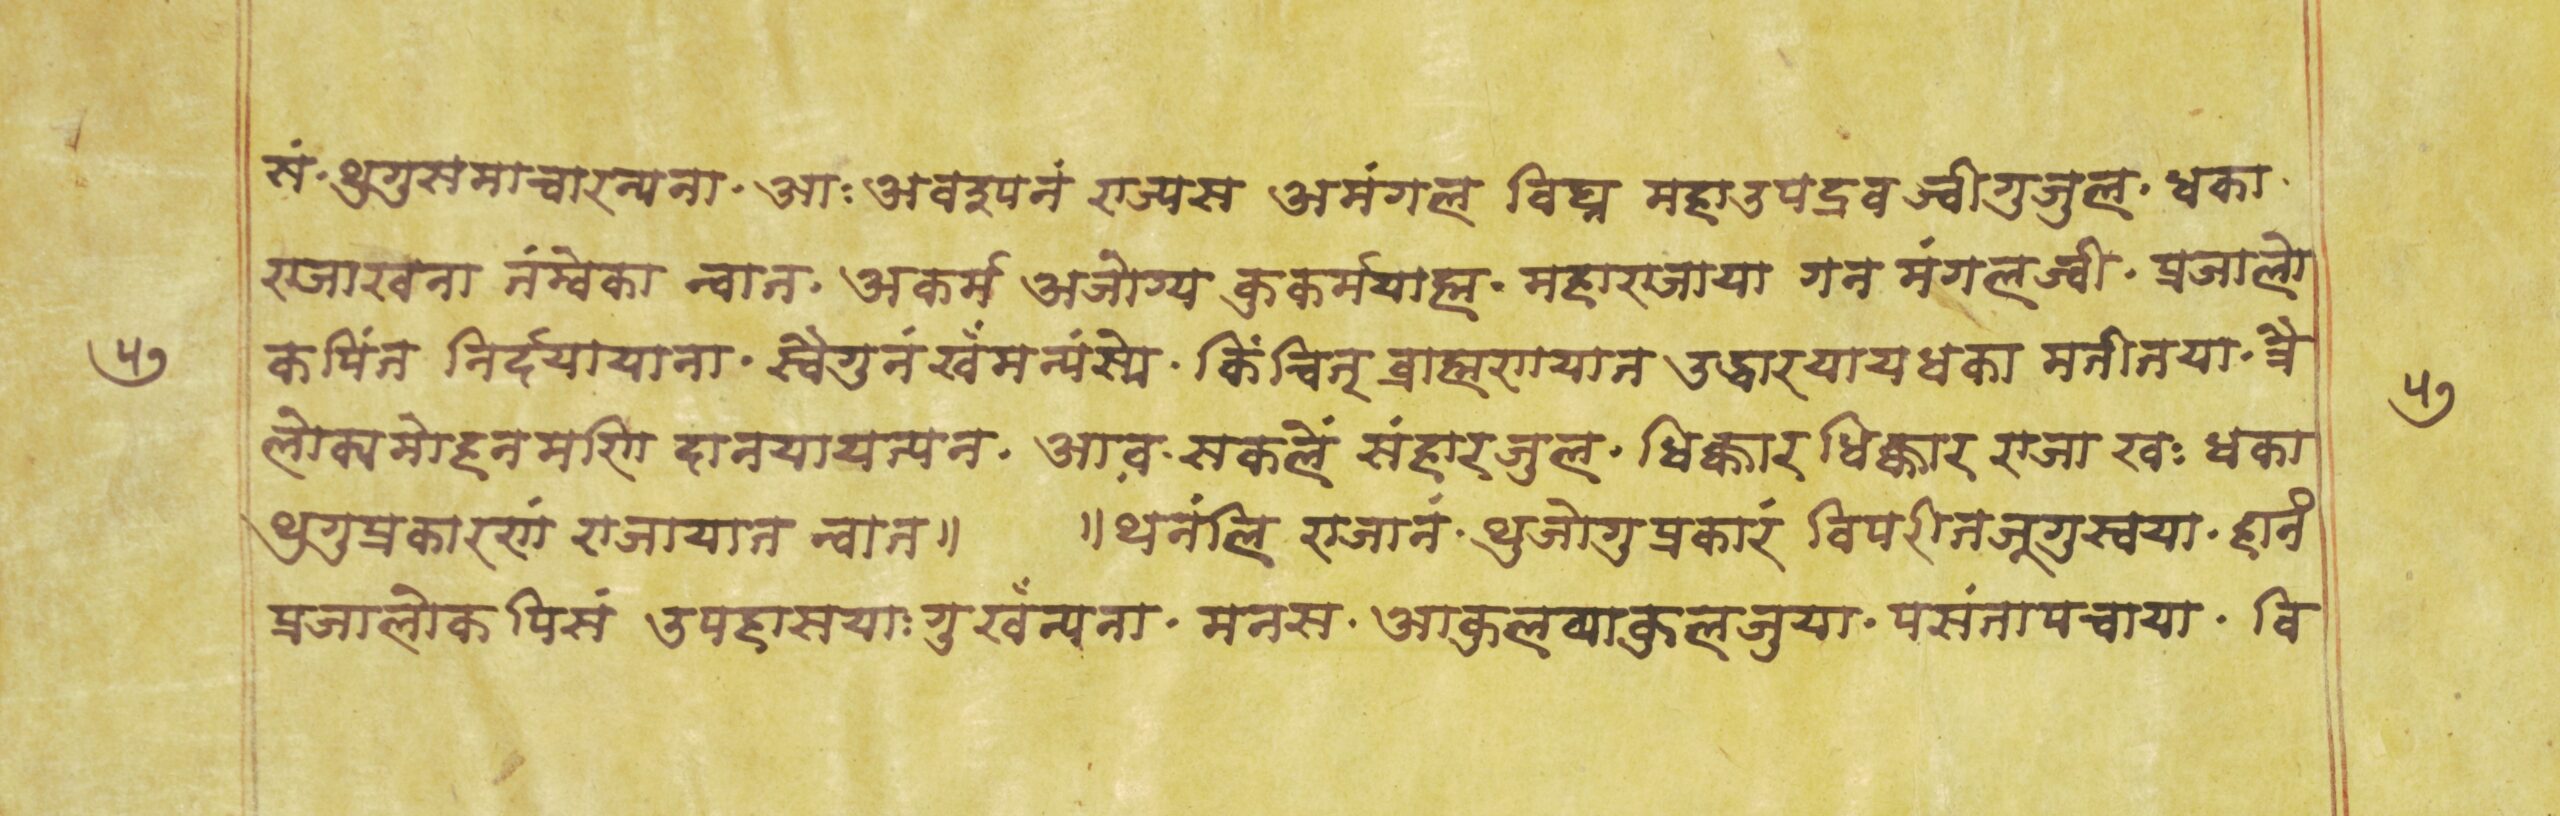 सं· थुगुसमाचारन्यना· आः अवदूपनं राज्यस अमंगल विघ्न महाउपद्रव ज्वीगुजुल· धका·
राजाखना नंम्वेका च्वान· अकर्म अजोग्य कुकर्मयाह्म· महाराजाया गन मंगलज्वी· प्रजालो
५७ कपिंत निर्दयायाना· स्वैगुनं खँमन्यंस्ये· किंचित् ब्राह्मणयात उद्धारयायधका मतीतया· त्रै ५७
लोक्यमोहनमणि दानयायत्यन· आव· सकलें संहारजुल· धिक्कार धिक्कार राजा खः धका
थुगुप्रकारणं राजायात च्वान॥ ॥थनंलि राजानं· थुजोगुप्रकारं विपरीतजूगुस्वया· हानं
प्रजालोक पिसं उपहासयाःगु खँन्यना· मनस· आकुलव्याकुलजुया· पसंतापचाया· वि